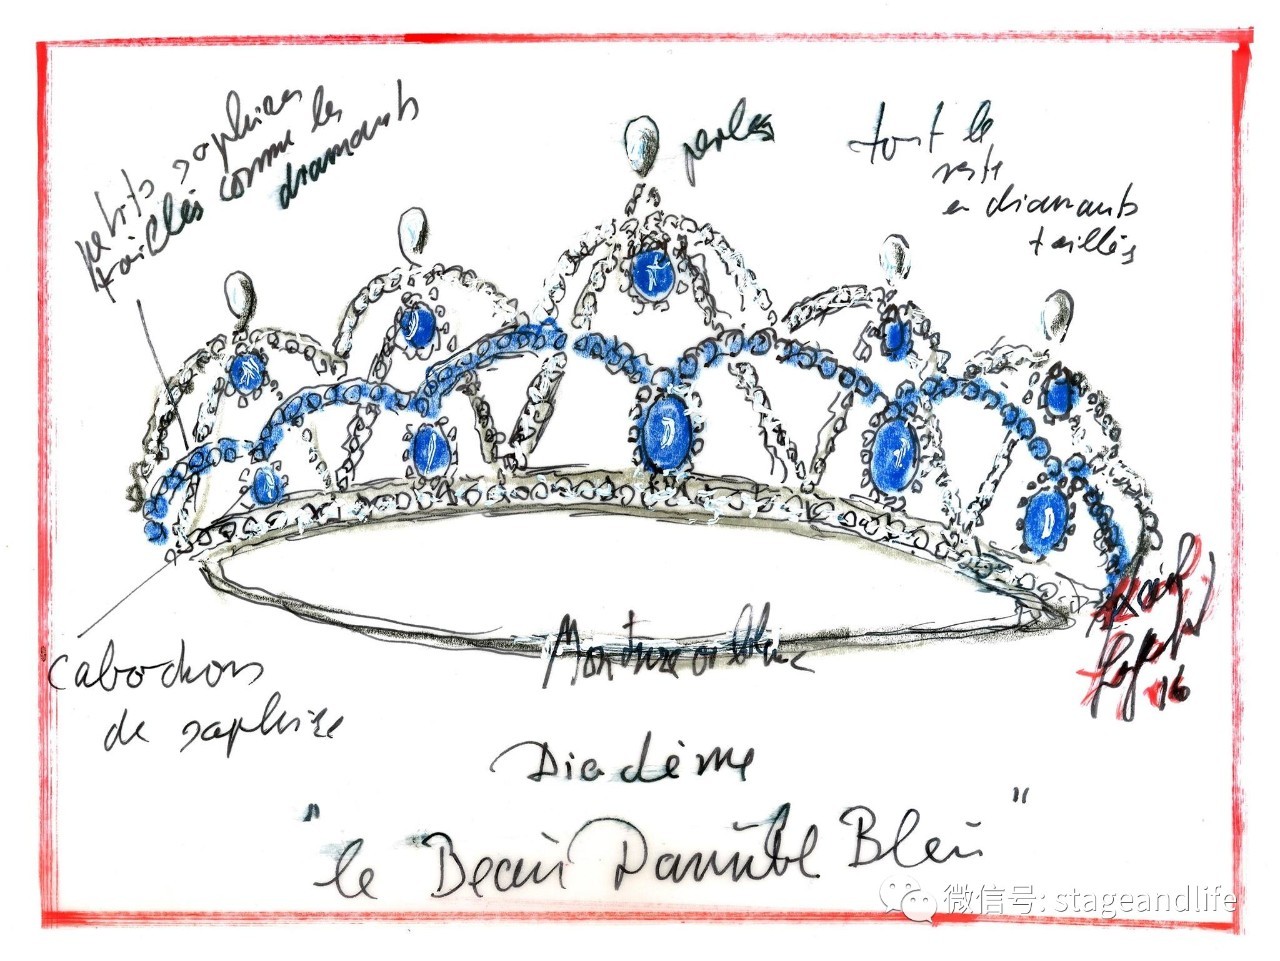 petits saphires
taillés comme les
diamants
perles
tout le
reste
en diamants
taillés
cabochons
de saphire
Monture or blanc
16
Diadème
"le Beau Danube Bleu"
微信号: stageandlife